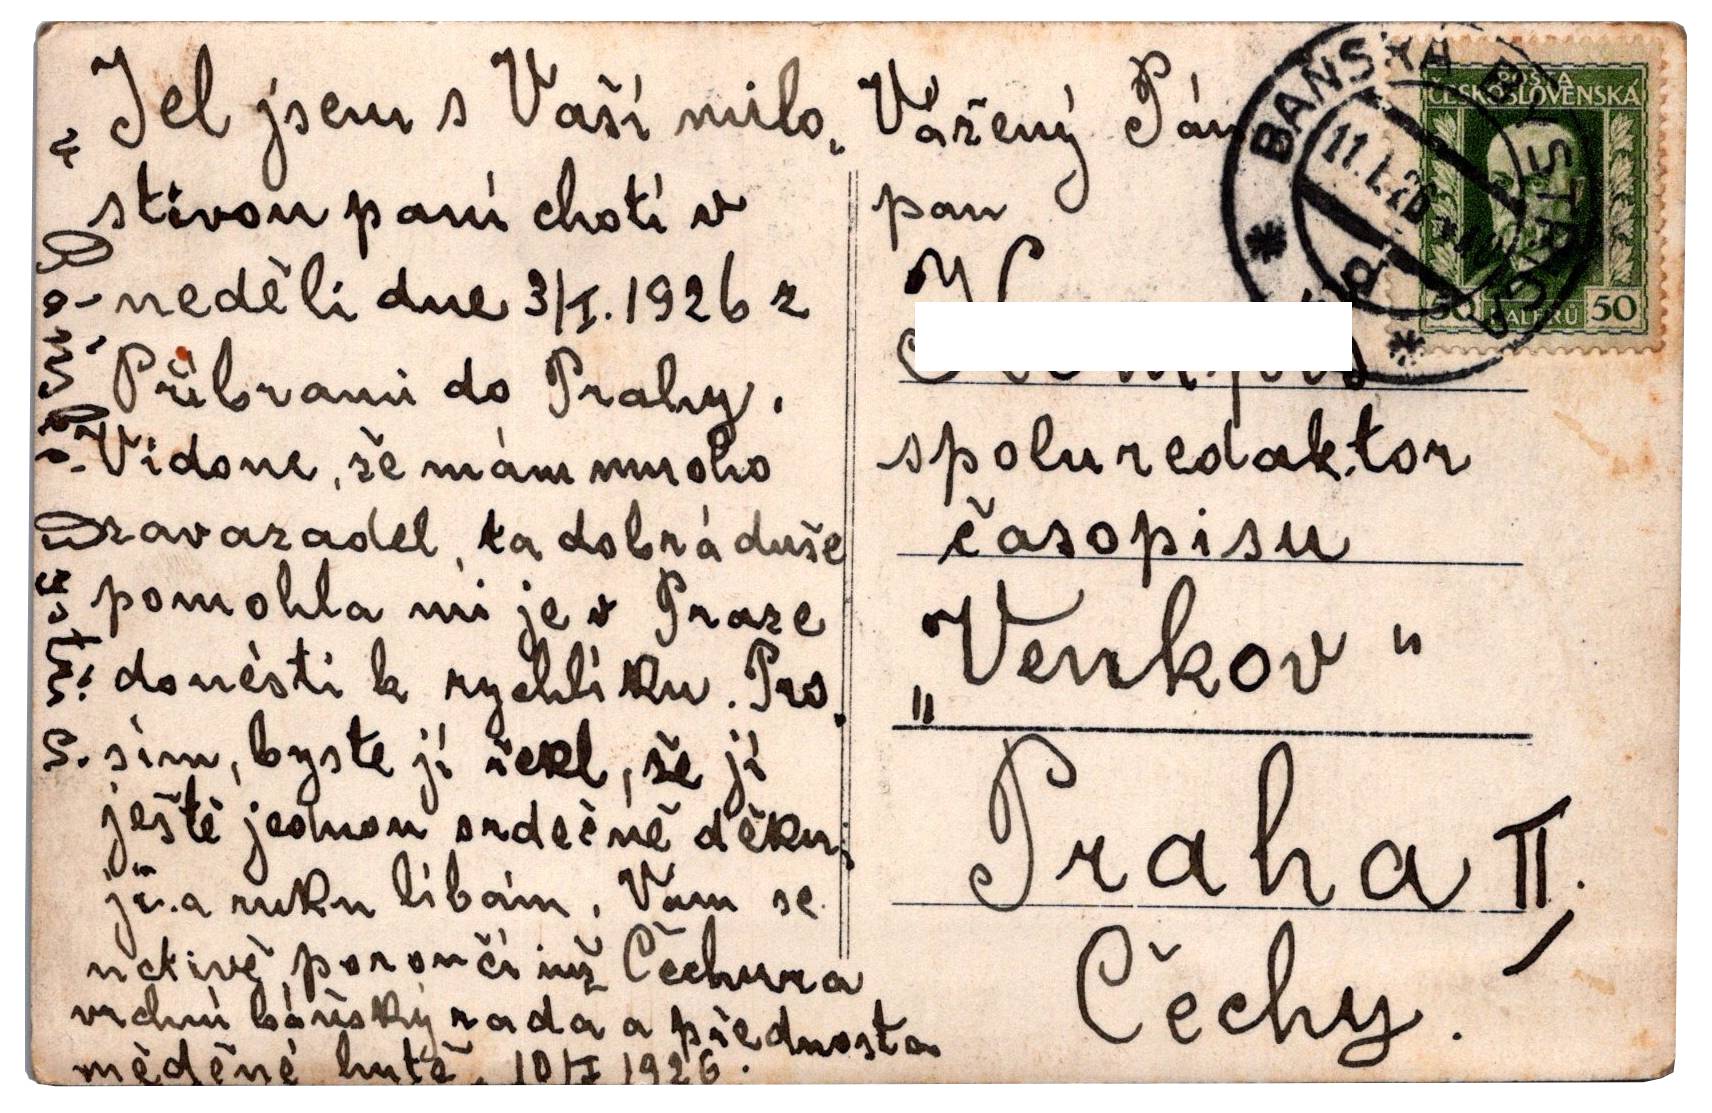 Jel jsem s Vaší milo„
stivou paní chotí v
neděli dne 3/I. 1926 z
Příbrami do Prahy.
Vidouc, že mám mnoho
zavazadel, ta dobrá duše
pomohla mi je v Praze
donésti k rychlíku. Pro„
sím, byste jí řekl, že jí
ještě jednou srdečně děku„
ji a ruku líbám. Vám se
uctivě poroučí inž. Čechura
vrchní báňský rada a přednosta
měděné hutě. 10/I 1926.
v Báňská Bystrici S.
Vážený Pán
pan
spoluredaktor
časopisu
„Venkov“
Praha II,
Čechy.
POŠTA
ČESKOSLOVENSKÁ
50 HALÉŘŮ 50
BAŇSKÁ BYSTRICA
11.I.26
d